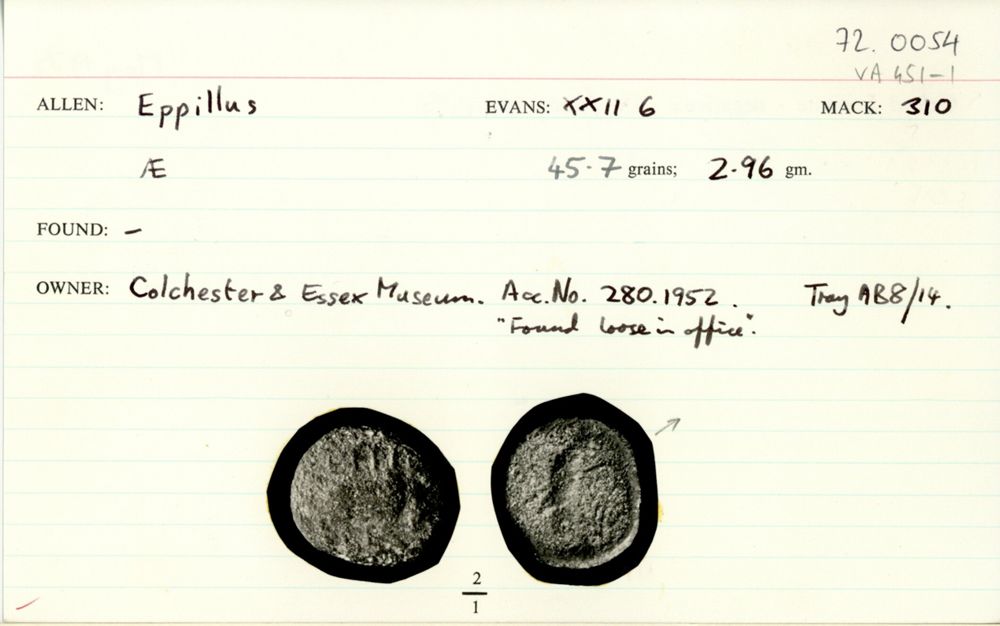 72.0054
VA 451-1
ALLEN: Eppillus EVANS: XXII 6 MACK: 310
Æ 45.7 grains; 2.96 gm.
FOUND: –
OWNER: Colchester & Essex Museum. Acc.No. 280.1952. Tray AB8/14.
"Found loose in office".
2
1